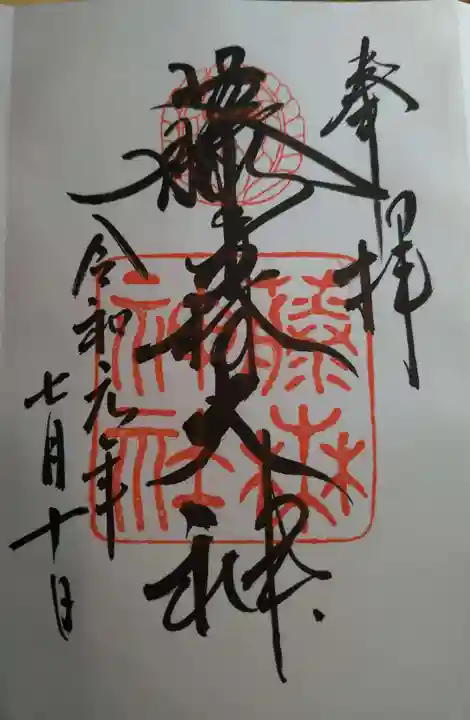 奉拝
藤森大神
令和元年
七月十日
藤森
神社